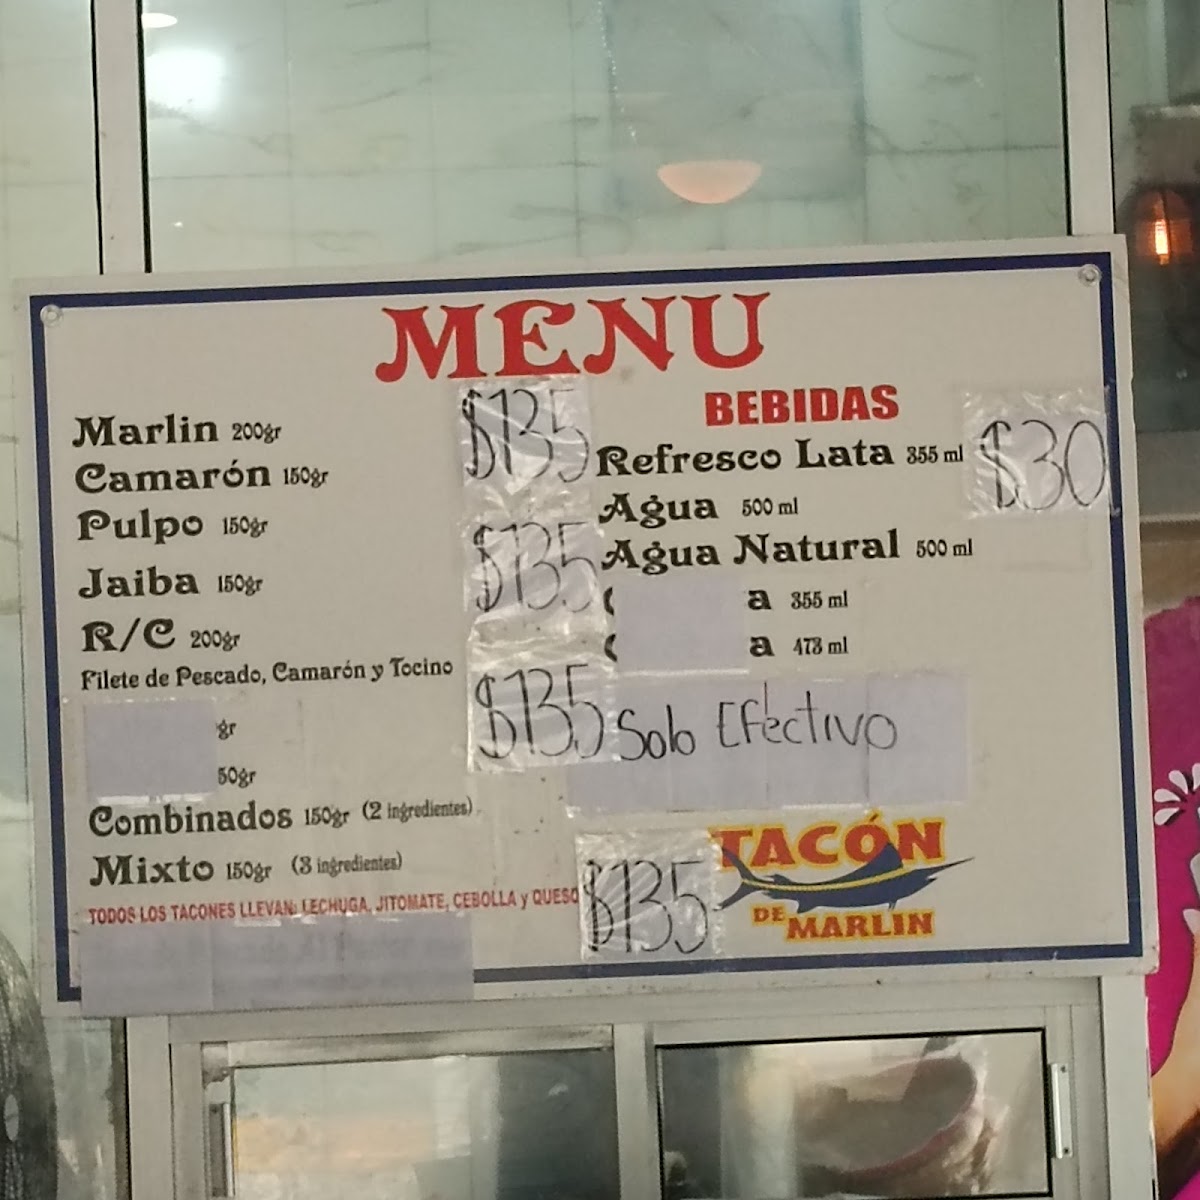 MENU
Marlin 200gr
$135
Camarón 150gr
Pulpo 150gr
Jaiba 150gr
$135
R/C 200gr
Filete de Pescado, Camarón y Tocino
$135
gr
50gr
Combinados 150gr (2 ingredientes)
Mixto 150gr (3 ingredientes)
$135
TODOS LOS TACONES LLEVAN: LECHUGA, JITOMATE, CEBOLLA y QUESO
BEBIDAS
Refresco Lata 355 ml
$30
Agua 500 ml
Agua Natural 500 ml
a 355 ml
a 473 ml
Solo Efectivo
TACÓN
DE MARLIN